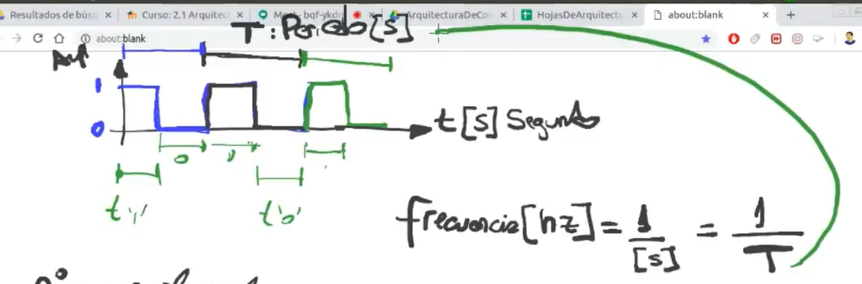 Resultados de bús
Curso: 2.1 Arquitec
M
bqf-ykdn
ArquitecturaDeCo
HojasDeArquitectu
about:blank
about:blank
T: Periodo [s]
1
0
t[s] Segundo
0
t'1'
t'0'
Frecuencia [hz] = 1/[s] = 1/T